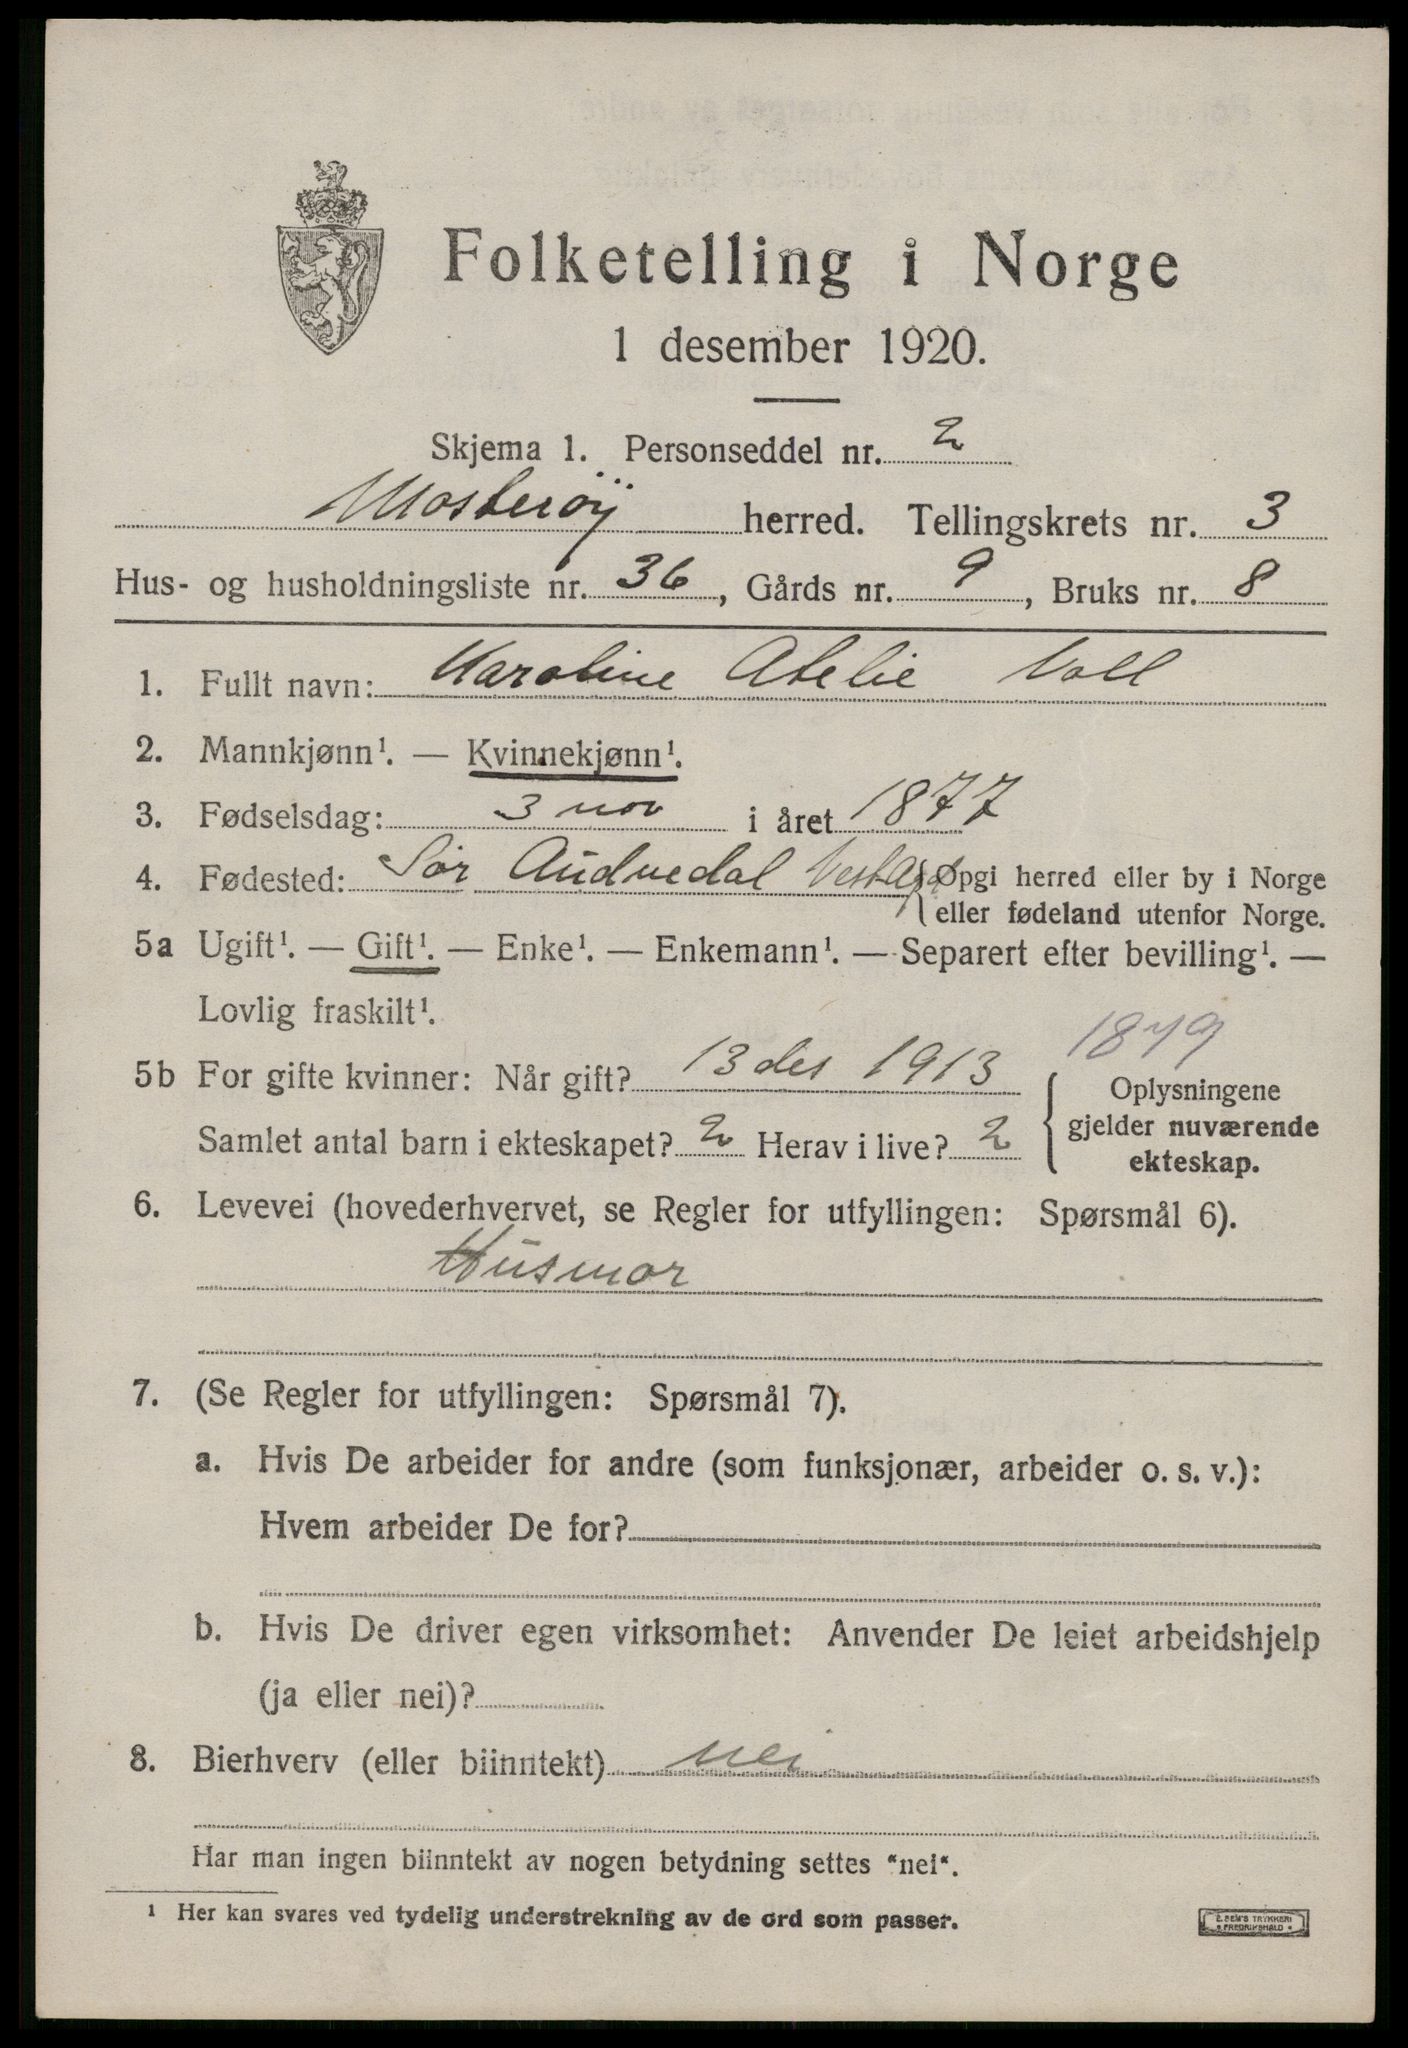 Folketelling i Norge
1 desember 1920.
Skjema 1. Personseddel nr. 2
Mosterøy herred. Tellingskrets nr. 3
Hus- og husholdningsliste nr. 36, Gårds nr. 9, Bruks nr. 8
1. Fullt navn: Karoline Atelie Voll
2. Mannkjønn¹. — Kvinnekjønn¹.
3. Fødselsdag: 3 nov i året 1877
4. Fødested: Sør Audnedal Vest Opgi herred eller by i Norge
eller fødeland utenfor Norge.
5a Ugift¹. — Gift¹. — Enke¹. — Enkemann¹. — Separert efter bevilling¹. —
Lovlig fraskilt¹.
1879
5b For gifte kvinner: Når gift? 13 des 1913 Oplysningene
gjelder nuværende
Samlet antal barn i ekteskapet? 2 Herav i live? 2
ekteskap.
6. Levevei (hovederhvervet, se Regler for utfyllingen: Spørsmål 6).
Husmor
7. (Se Regler for utfyllingen: Spørsmål 7).
a. Hvis De arbeider for andre (som funksjonær, arbeider o. s. v.):
Hvem arbeider De for?
b. Hvis De driver egen virksomhet: Anvender De leiet arbeidshjelp
(ja eller nei)?
8. Bierhverv (eller biinntekt) nei
Har man ingen biinntekt av nogen betydning settes "nei".
¹ Her kan svares ved tydelig understrekning av de ord som passer.
E. SEM'S TRYKKERI
FREDRIKSHALD